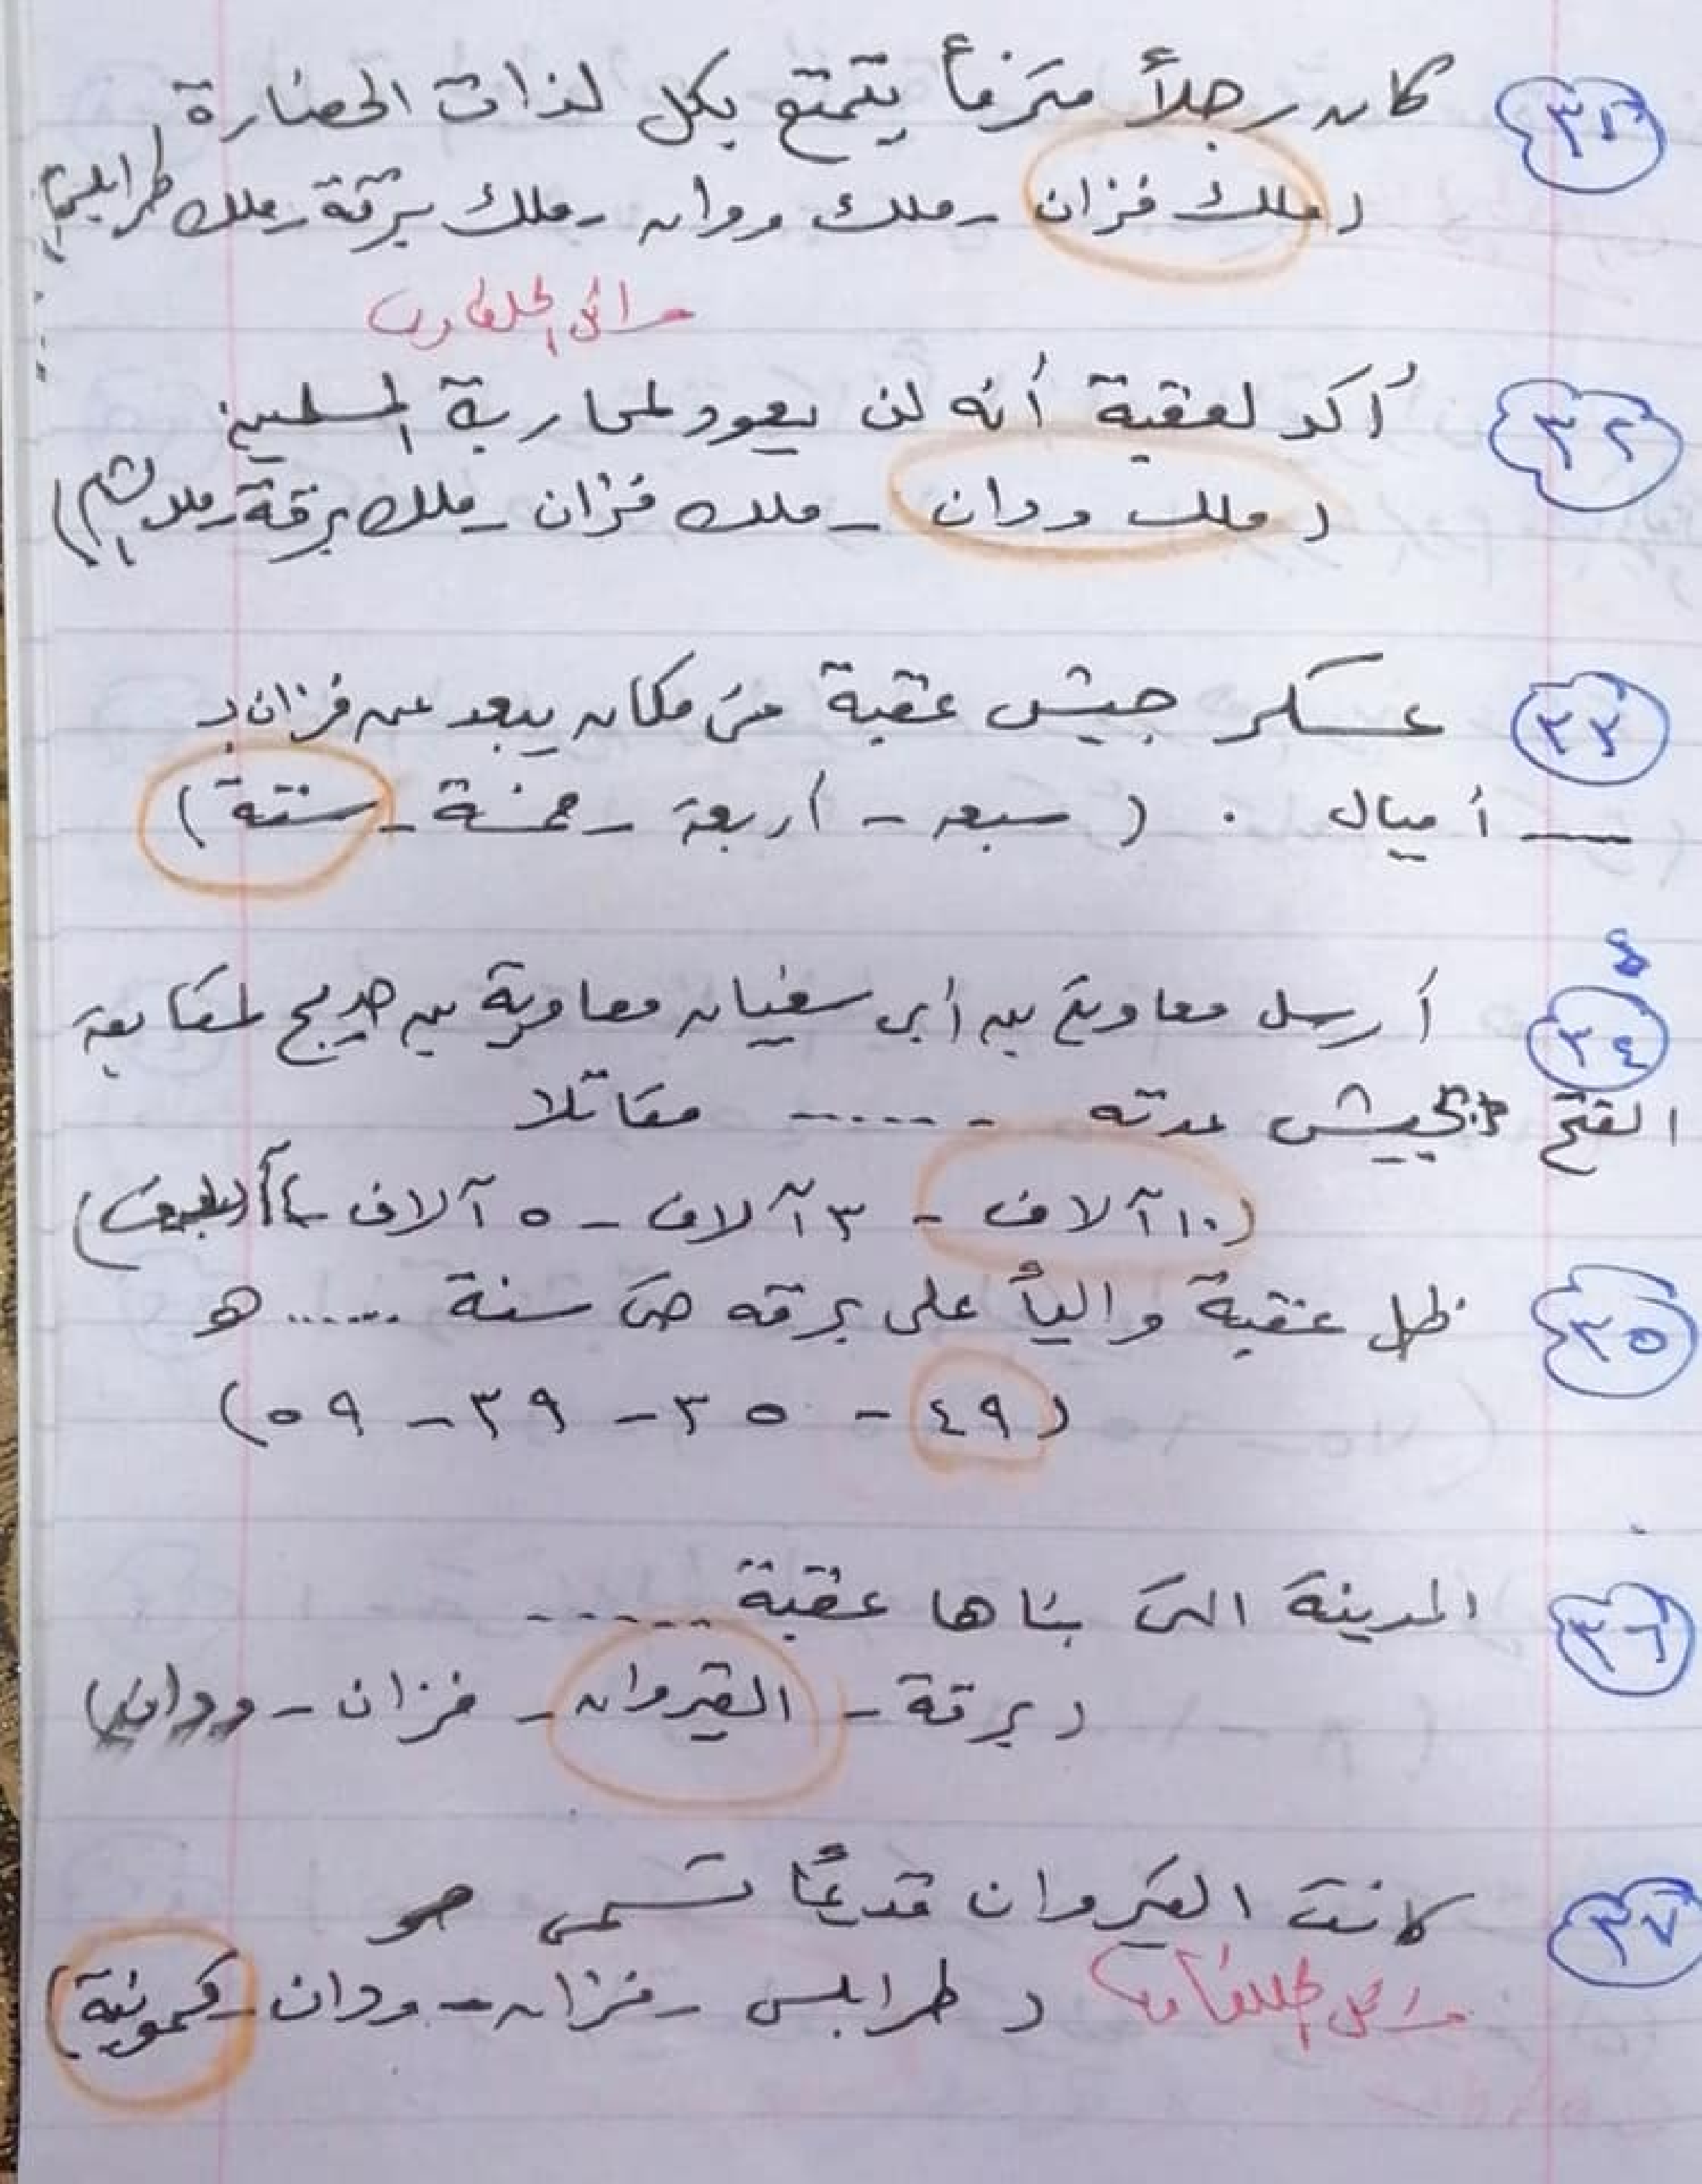 ٣١ كان رجلاً مترفاً يتمتع بكل لذات الحضارة
(ملك فزان - ملك ودان - ملك برقة - ملك طرابلس)
٣٢ أكد لعقبة أنه لن يعود لمحاربة المسلمين
(ملك ودان - ملك فزان - ملك برقة - ملك
٣٣ عسكر جيش عقبة فى مكان يبعد عن فزان بـ
ـــــ أميال . (سبعه - أربعة - خمسة - ستة)
٣٤ أرسل معاوية بن أبى سفيان معاوية بن حديج لمتابعة
الفتح بجيش عدته ...... مقاتلا
(١٠ آلاف - ٣ آلاف - ٥ آلاف -
٣٥ ظل عقبة والياً على برقه حتى سنة ...... هـ
(٤٩ - ٣٥ - ٣٩ - ٥٩)
٣٦ المدينة التى بناها عقبة ......
(برقة - القيروان - فزان - ودان)
٣٧ كانت القيروان قديماً تسمى
(طرابلس - فزان - ودان - قمونية)